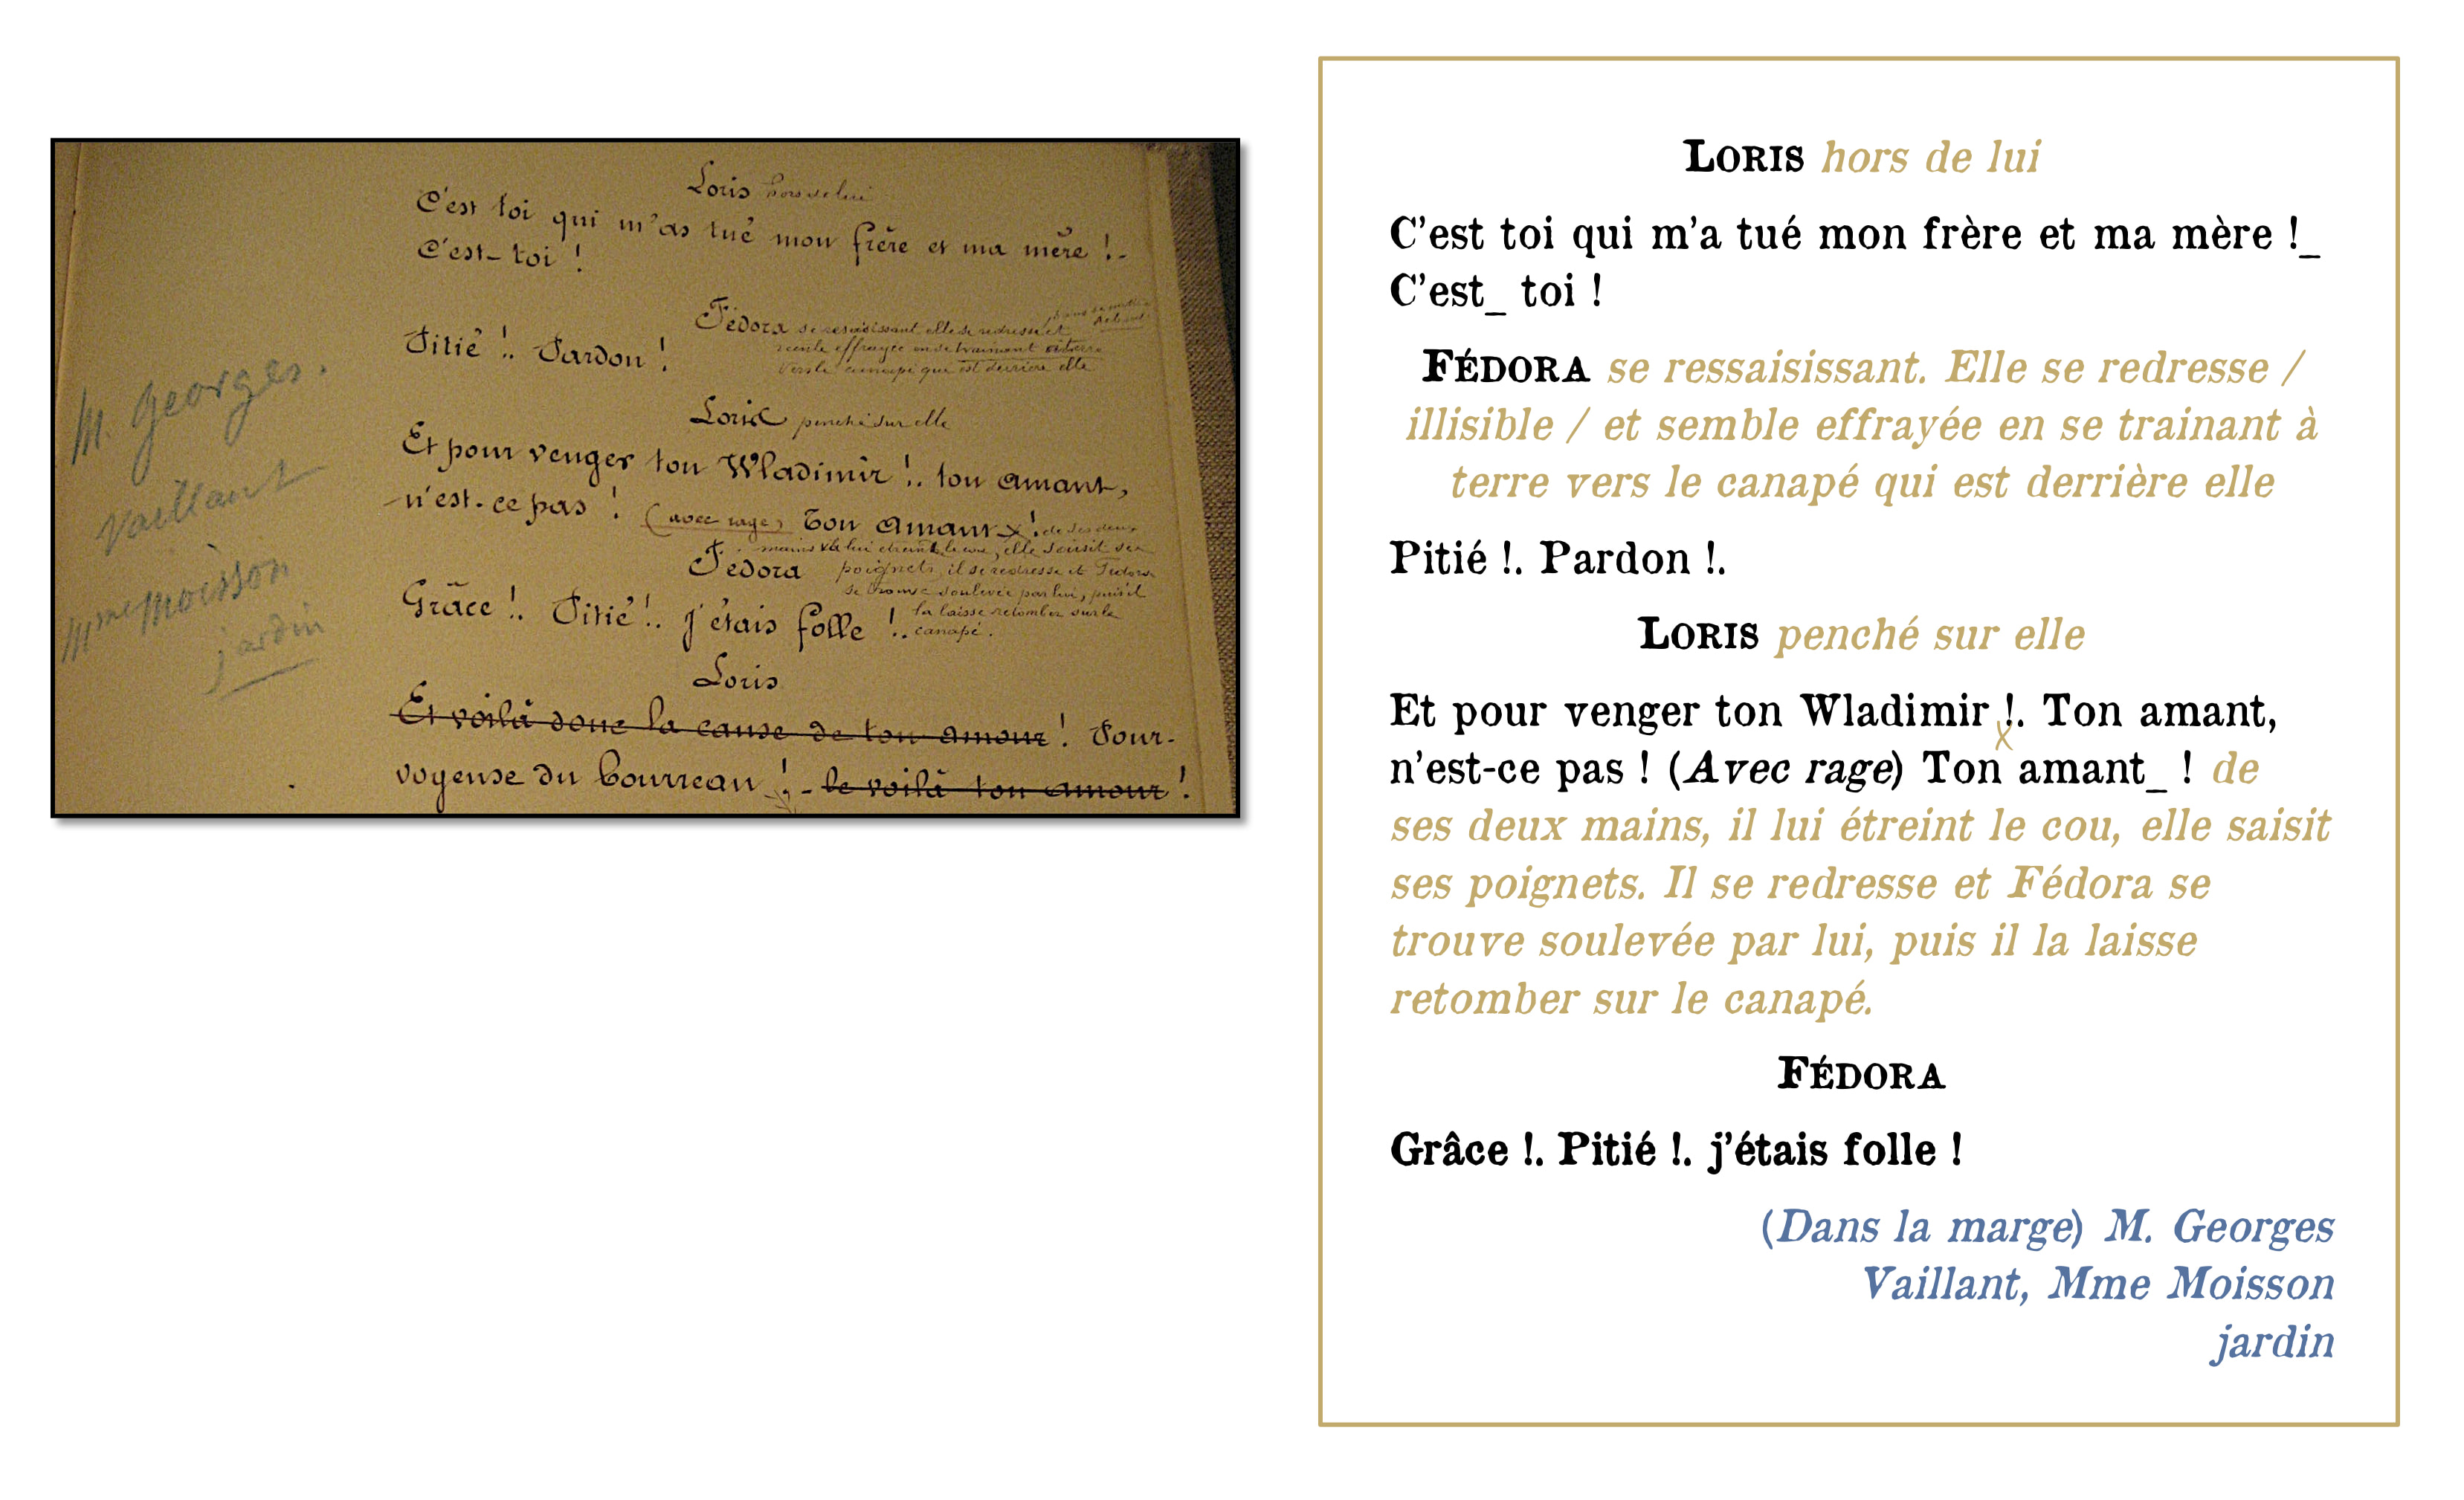 Loris hors de lui
C'est toi qui m'as tué mon frère et ma mère !_
C'est_ toi !
Fédora se ressaisissant elle se redresse et
recule effrayée en se trainant à terre
vers le canapé qui est derrière elle
Pitié !. Pardon !
Loris penché sur elle
Et pour venger ton Wladimir !. ton amant,
n'est-ce pas ! (avec rage) Ton amant x ! de ses deux
mains il lui étreint le cou, elle saisit ses
Fédora poignets, il se redresse et Fédora
se trouve soulevée par lui, puis il
la laisse retomber sur le
canapé.
Grâce !. Pitié !. j'étais folle !.
Loris
Et voilà donc la cause de ton amour ! Pour-
voyeuse du bourreau ! - le voilà ton amour !
M. Georges.
Vaillant
Mme Moisson
jardin
LORIS hors de lui
C'est toi qui m'a tué mon frère et ma mère !_
C'est_ toi !
FÉDORA se ressaisissant. Elle se redresse /
illisible / et semble effrayée en se trainant à
terre vers le canapé qui est derrière elle
Pitié !. Pardon !.
LORIS penché sur elle
Et pour venger ton Wladimir !. Ton amant,
x
n'est-ce pas ! (Avec rage) Ton amant_ ! de
ses deux mains, il lui étreint le cou, elle saisit
ses poignets. Il se redresse et Fédora se
trouve soulevée par lui, puis il la laisse
retomber sur le canapé.
FÉDORA
Grâce !. Pitié !. j'étais folle !
(Dans la marge) M. Georges
Vaillant, Mme Moisson
jardin